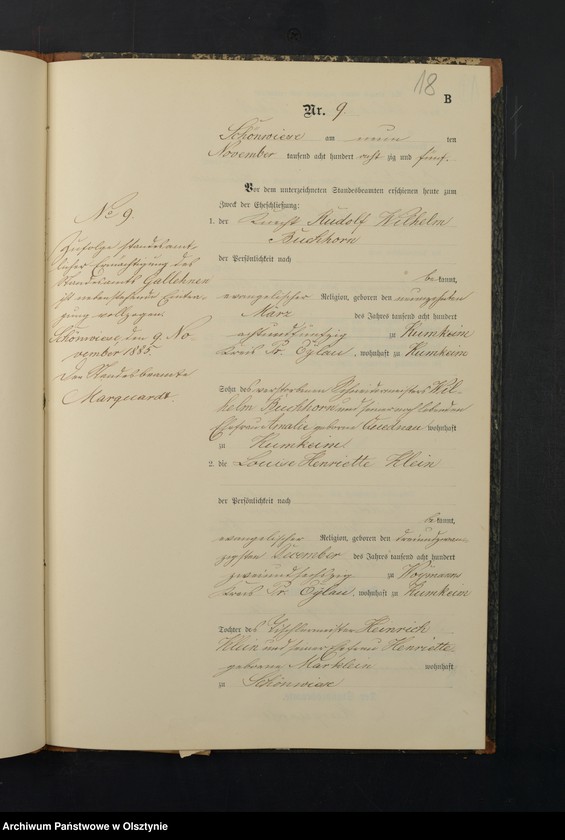 18
B
Nr. 9.
Schönwiese am neun ten
November tausend acht hundert acht zig und fünf.
Vor dem unterzeichneten Standesbeamten erschienen heute zum
Zweck der Eheschließung:
1. der Knecht Rudolf Wilhelm
Buchhorn
der Persönlichkeit nach
be kannt,
evangelischer Religion, geboren den neunzehnten
März des Jahres tausend acht hundert
achtundfünfzig zu Kumkeim
Kreis Pr. Eylau, wohnhaft zu Kumkeim
Sohn des verstorbenen Wil-
helm Buchhorn und seiner noch lebenden
Ehefrau Amalie geborene wohnhaft
zu Kumkeim
2. die Louise Henriette Klein
der Persönlichkeit nach
be kannt,
evangelischer Religion, geboren den dreiundzwan-
zigsten December des Jahres tausend acht hundert
zweiundsechszig zu Woymanns
Kreis Pr. Eylau, wohnhaft zu Kumkeim
Tochter des Tischlermeister Heinrich
Klein und seiner Ehefrau Henriette
geborene Märklein wohnhaft
zu Schönwiese
No 9.
Zufolge standesamt-
licher Ermächtigung des
Standesamts Gallehnen
ist nebenstehende Eintra-
gung vollzogen.
Schönwiese den 9. No-
vember 1885.
Der Standesbeamte
Marquardt.
Archiwum Państwowe w Olsztynie